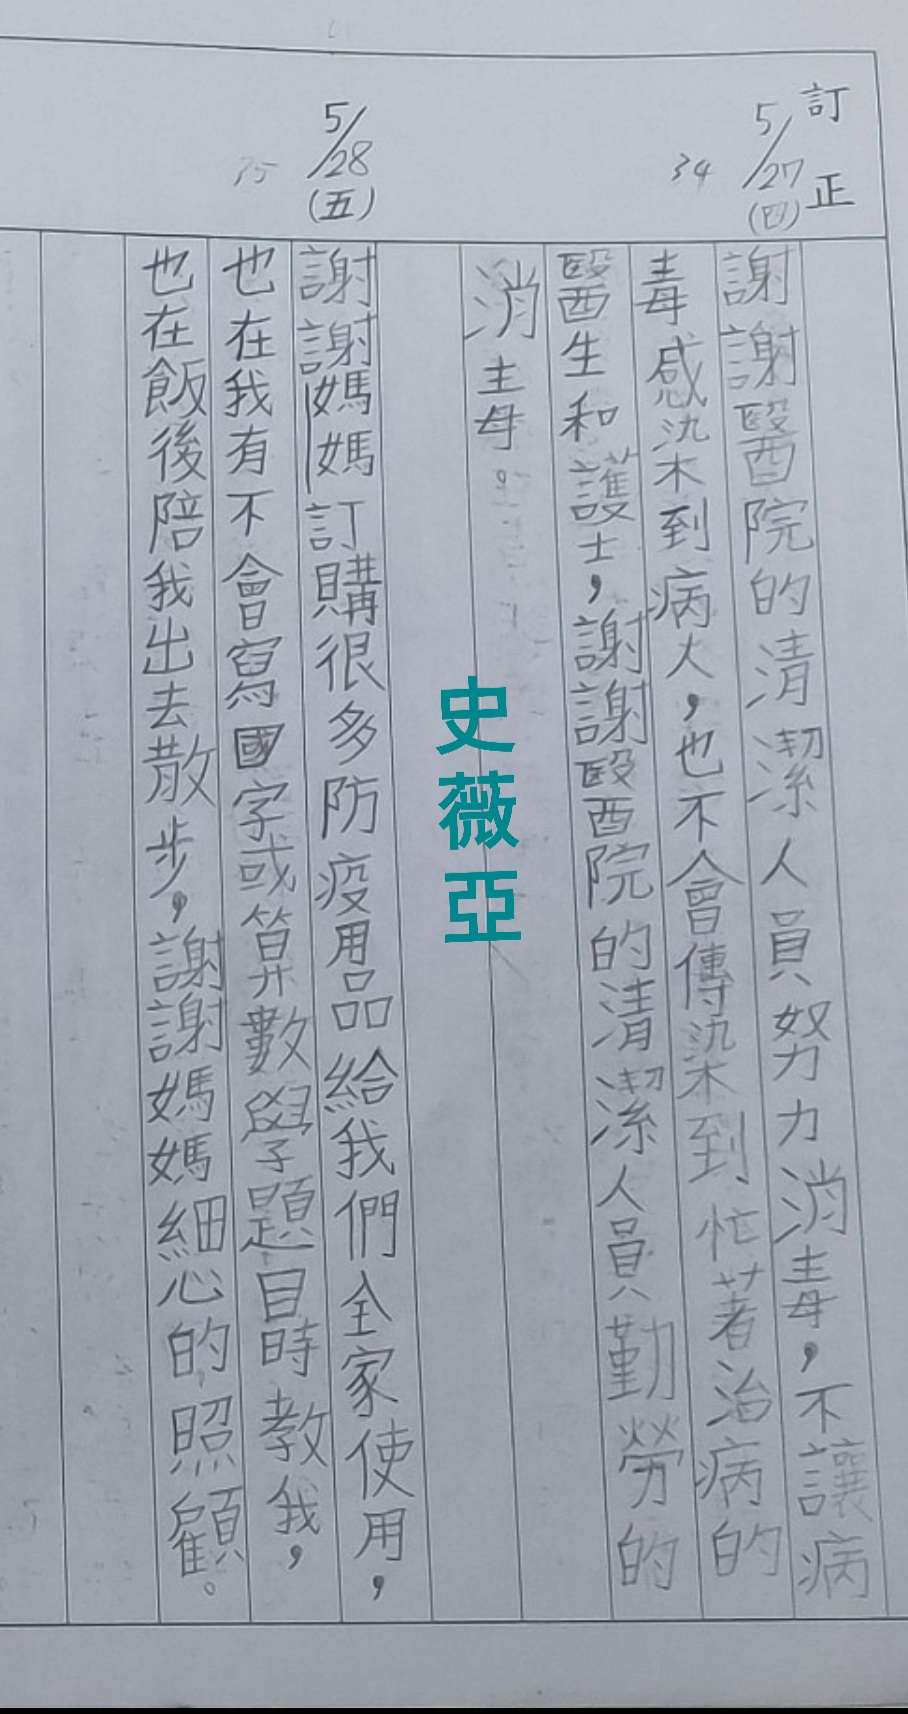 訂正
5/27
(四)
34
謝謝醫院的清潔人員努力消毒，不讓病
毒感染到病人，也不會傳染到忙著治病的
醫生和護士，謝謝醫院的清潔人員勤勞的
消毒。
5/28
(五)
35
謝謝媽媽訂購很多防疫用品給我們全家使用，
也在我有不會寫國字或算數學題目時教我，
也在飯後陪我出去散步，謝謝媽媽細心的照顧。
史薇亞